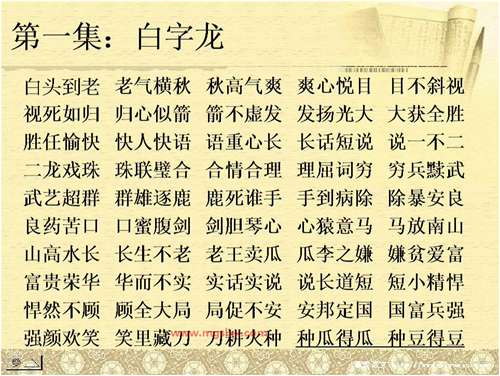 第一集：白字龙
白头到老 老气横秋 秋高气爽 爽心悦目 目不斜视
视死如归 归心似箭 箭不虚发 发扬光大 大获全胜
胜任愉快 快人快语 语重心长 长话短说 说一不二
二龙戏珠 珠联璧合 合情合理 理屈词穷 穷兵黩武
武艺超群 群雄逐鹿 鹿死谁手 手到病除 除暴安良
良药苦口 口蜜腹剑 剑胆琴心 心猿意马 马放南山
山高水长 长生不老 老王卖瓜 瓜李之嫌 嫌贫爱富
富贵荣华 华而不实 实话实说 说长道短 短小精悍
悍然不顾 顾全大局 局促不安 安邦定国 国富兵强
强颜欢笑 笑里藏刀 刀耕火种 种瓜得瓜 种豆得豆